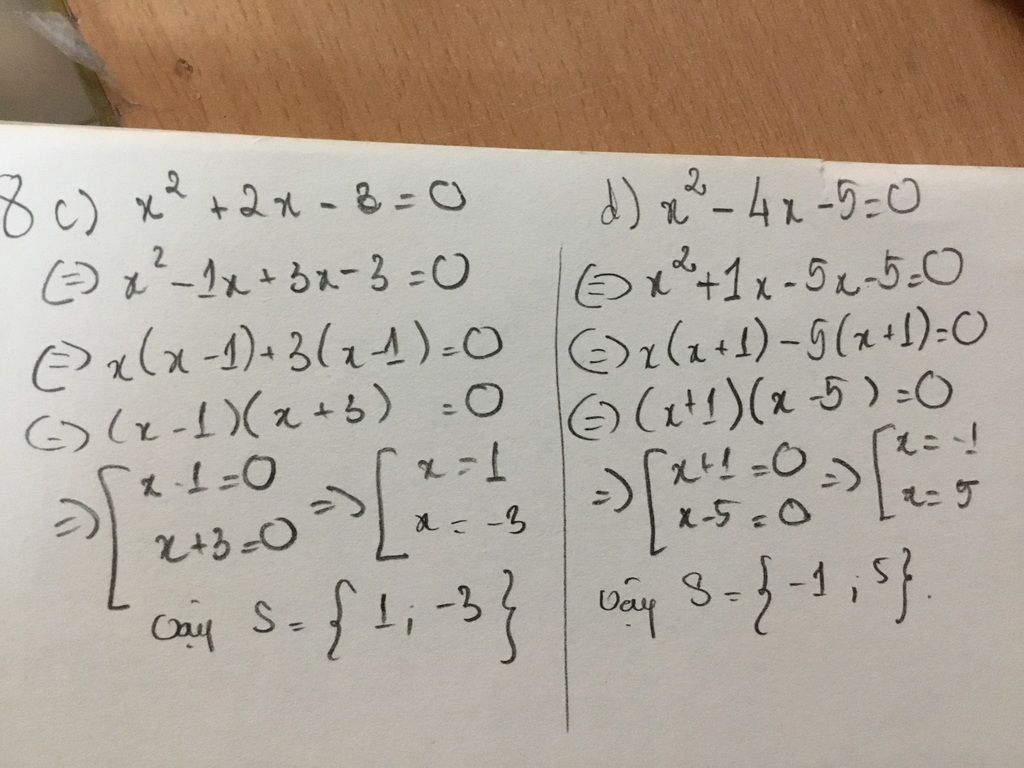 8 c) x² + 2x - 3 = 0
(=) x² - 1x + 3x - 3 = 0
(=) x(x - 1) + 3(x - 1) = 0
(=) (x - 1)(x + 3) = 0
=> [ x - 1 = 0 => [ x = 1
x + 3 = 0 x = -3
Vậy S = { 1 ; -3 }
d) x² - 4x - 5 = 0
(=) x² + 1x - 5x - 5 = 0
(=) x(x + 1) - 5(x + 1) = 0
(=) (x + 1)(x - 5) = 0
=> [ x + 1 = 0 => [ x = -1
x - 5 = 0 x = 5
Vậy S = { -1 ; 5 }.